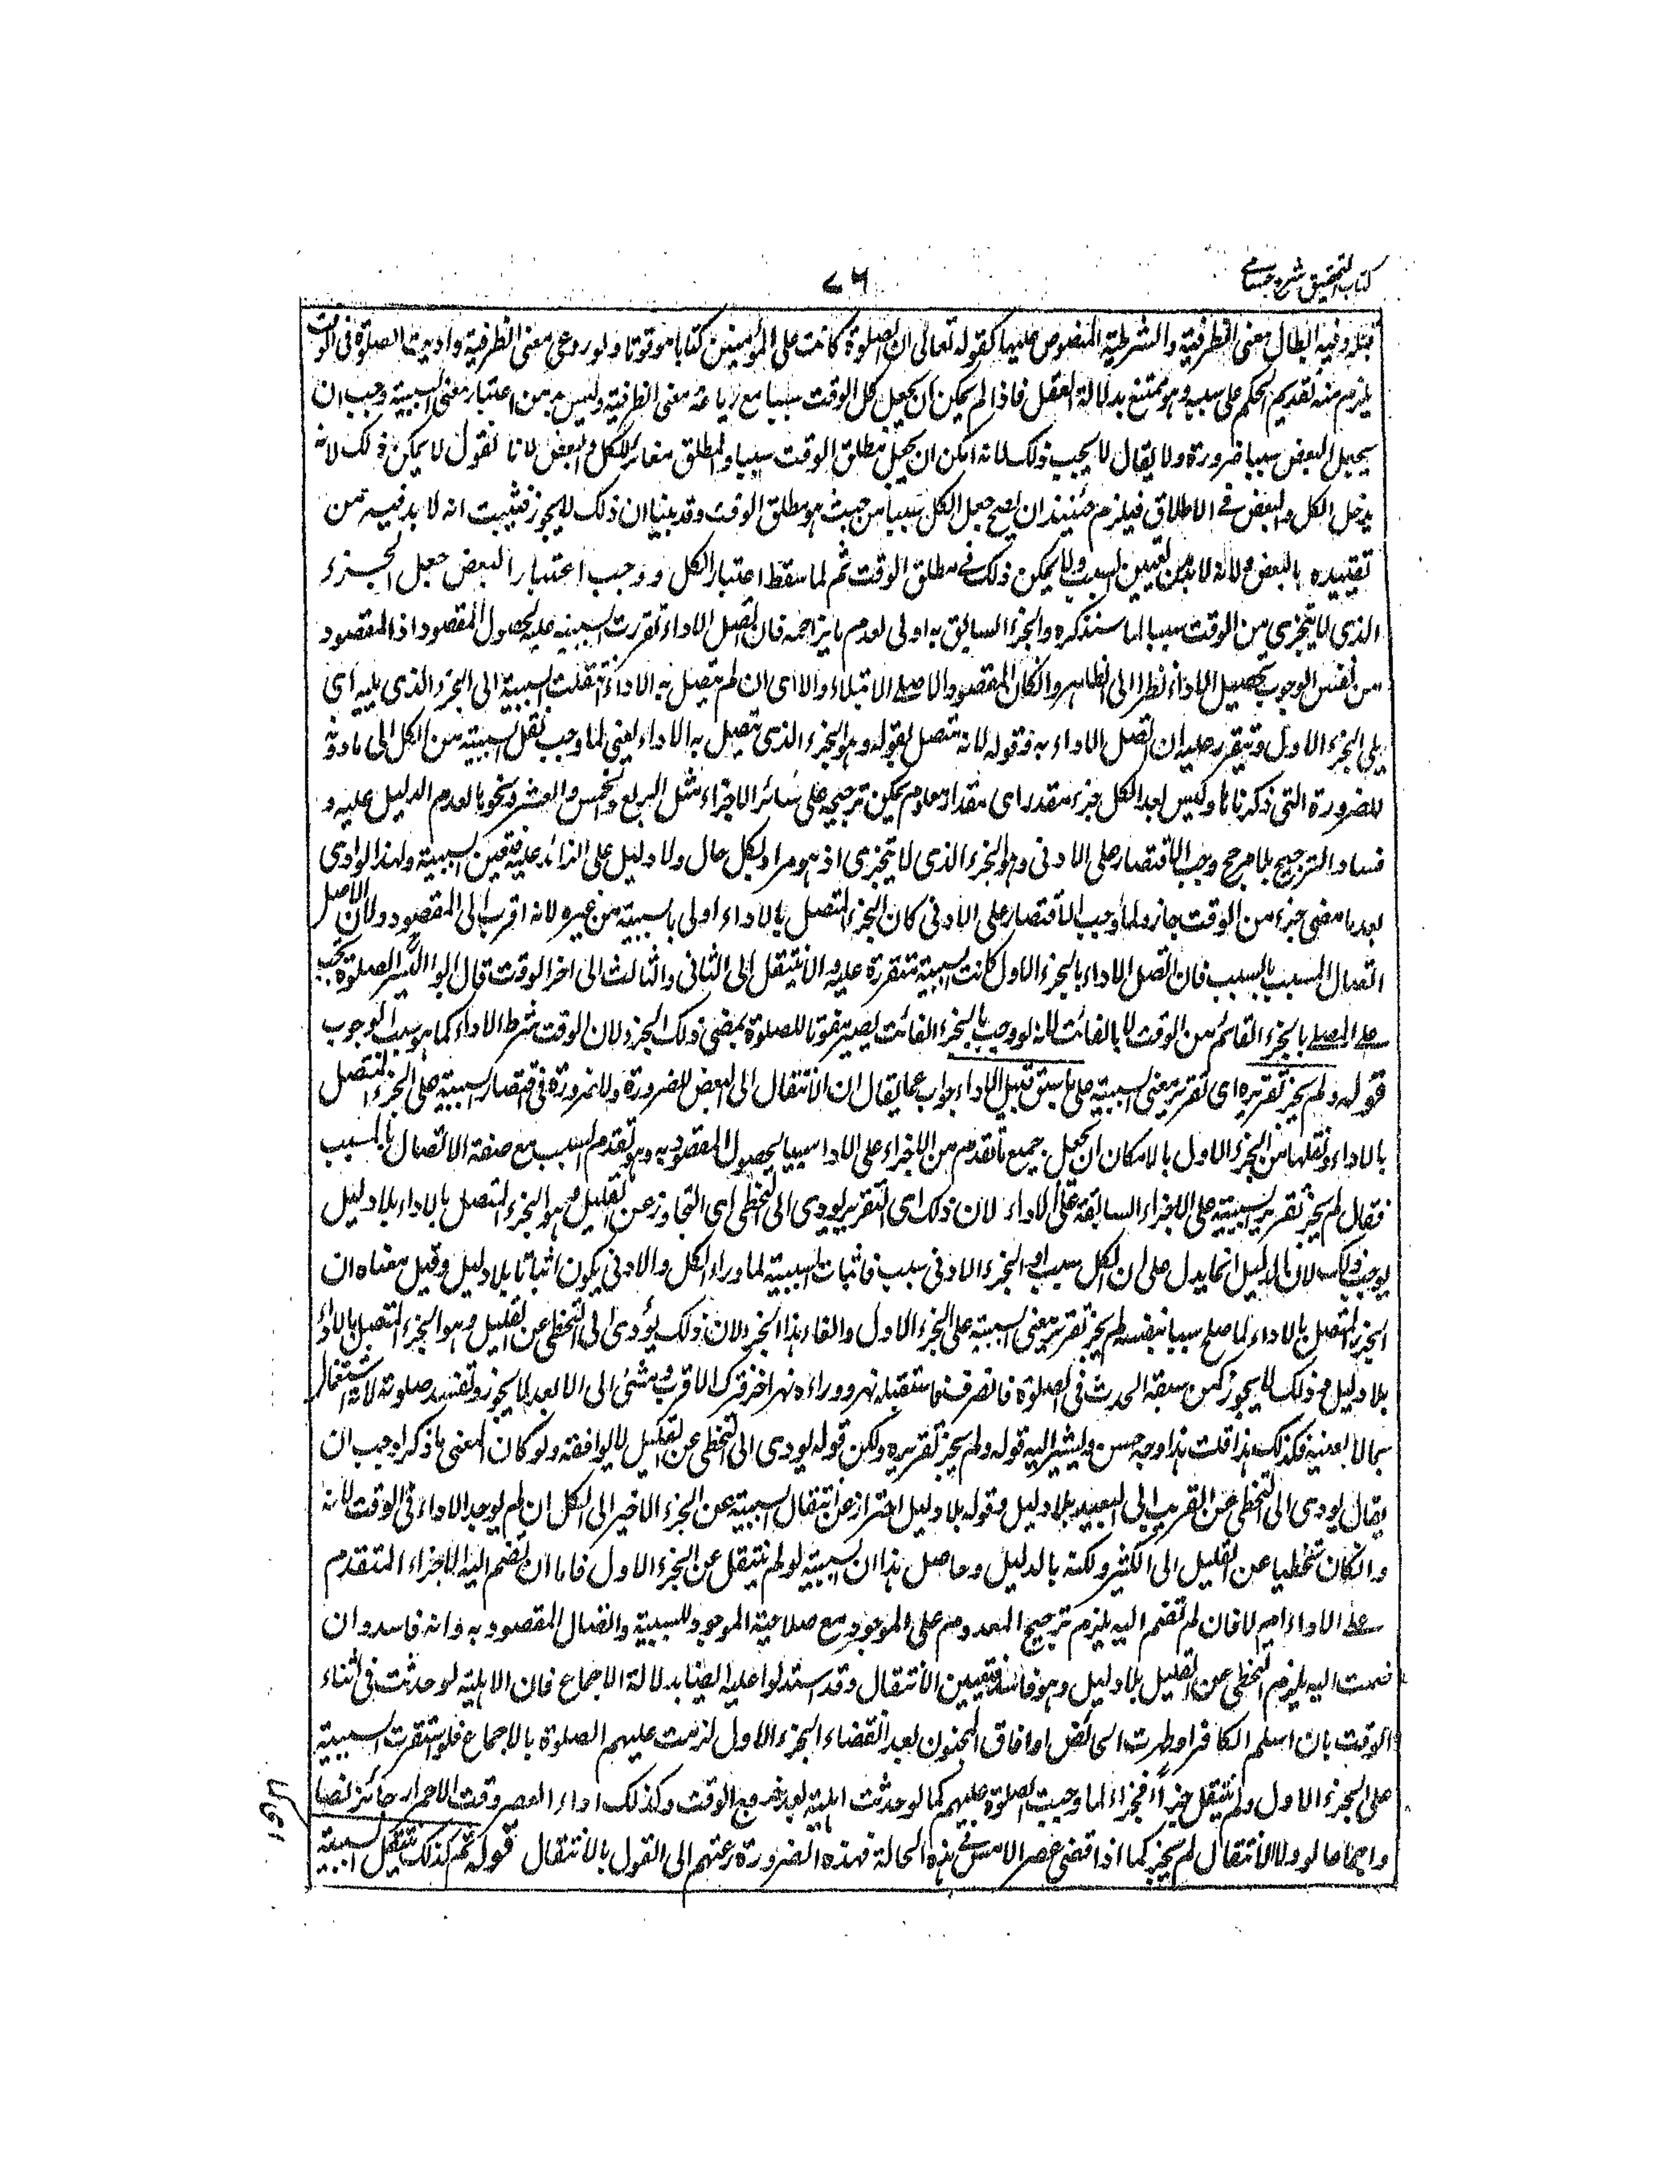 كتاب التحقيق شرح حسامى
٧٦
قبله وفيه ابطال معنى الظرفية والشرطية المنصوص عليها كقوله تعالى ان الصلوة كانت على المؤمنين كتابا موقوتا ولو روعى معنى الظرفية واديت الصلوة فى الوقت
يلزم منه تقديم الحكم على سببه وهو ممتنع بدلالة العقل فاذا لم يمكن ان يجعل كل الوقت سببا مع رعاية معنى الظرفية وليس بد من اعتبار معنى السببية وجب ان
يجعل البعض سببا ضرورة ولا يقال لا يجب ذلك لانه امكن ان يجعل مطلق الوقت سببا والمطلق مغائر للكل والبعض لانا نقول لا يمكن ذلك لانه
يدخل الكل والبعض فى الاطلاق فيلزم حينئذ ان يصح جعل الكل سببا من حيث هو مطلق الوقت وقد بينا ان ذلك لا يجوز فثبت انه لا بد فيه من
تقييده بالبعض ولانه لا بد من تعيين السبب ولا يمكن ذلك فى مطلق الوقت ثم لما سقط اعتبار الكل ووجب اعتبار البعض جعل الجزء
الذى لا يتجزى من الوقت سببا لما سنذكره والجزء السابق به اولى لعدم ما يزاحمه فان اتصل الاداء تقررت السببية عليه لحصول المقصود اذ المقصود
من نفس الوجوب تحصيل الاداء نظرا الى الظاهر وان كان المقصود الاصلے الابتلاء والا اى ان لم يتصل به الاداء انتقلت السببية الى الجزء الذى يليه اى
يلى الجزء الاول ويتقرر عليه ان اتصل الاداء به وقوله لانه متصل بقوله وهو الجزء الذى يتصل به الاداء يعنى لما وجب نقل السببية من الكل الى ما دونه
للضرورة التى ذكرناها وليس بعد الكل جزء مقدر اى مقدار معلوم يمكن ترجيحه على سائر الاجزاء مثل الربع والخمس والعشر ونحوها لعدم الدليل عليه و
فساد الترجيح بلا مرجح وجب الاقتصار على الادنى وهو الجزء الذى لا يتجزى اذ هو مراد بكل حال ولا دليل على الزائد عليه فتعين للسببية ولهذا لو ادى
بعد ما مضى جزء من الوقت جاز ولما وجب الاقتصار على الادنى كان الجزء المتصل بالاداء اولى بالسببية من غيره لانه اقرب الى المقصود ولان الاصل
اتصال المسبب بالسبب فان اتصل الاداء بالجزء الاول كانت السببية متقررة عليه والا ينتقل الى الثانى والثالث الى اخر الوقت قال ابو اليسر الصلوة تجب
على المصلے بالجزء القائم من الوقت لا بالفائت لانه لو وجب بالجزء الفائت يصير مفوتا للصلوة بمضى ذلك الجزء ولان الوقت شرط الاداء كما هو سبب الوجوب
قوله ولم يجز تقريره اى تقرير معنى السببية على ما سبق قبيل الاداء جواب عما يقال ان الانتقال الى البعض للضرورة ولا ضرورة فى اقتصار السببية على الجزء المتصل
بالاداء ونقلها من الجزء الاول بالامكان ان يجعل جميع ما تقدم من الاجزاء على الاداء سببا لحصول المقصود به وهو تقدم السبب مع صفة الاتصال بالمسبب
فقال لم يجز تقرير السببية على الاجزاء السابقة على الاداء لان ذلك اى التقرير يودى الى التخطى اى التجاوز عن القليل وهو الجزء المتصل بالاداء بلا دليل
يوجب ذلك لان الدليل انما يدل على ان الكل سبب او الجزء الادنى سبب فاثبات السببية لما وراء الكل والادنى يكون اثباتا بلا دليل وقيل معناه ان
الجزء المتصل بالاداء لما صلح سببا بنفسه لم يجز تقرير معنى السببية على الجزء الاول والغاء هذا الجزء لان ذلك يؤدى الى التخطى عن القليل وهو الجزء المتصل بالاداء
بلا دليل وذلك لا يجوز كمن سبقه الحدث فى الصلوة فانصرف فاستقبله نهر ووراءه نهر اخر فترك الاقرب ومشى الى الابعد لا يجوز وتفسد صلوته لانه اشتغال
بما لا يعنيه فكذلك هذا قلت هذا وجه حسن ويشير اليه قوله ولم يجز تقريره ولكن قوله يودى الى التخطى عن القليل لا يوافقه ولو كان المعنى ما ذكر لوجب ان
يقال يودى الى التخطى عن القريب الى البعيد بلا دليل وقوله بلا دليل احتراز عن انتقال السببية عن الجزء الاخير الى الكل ان لم يوجد الاداء فى الوقت لانه
وان كان تخطيا عن القليل الى الكثير ولكنه بالدليل وحاصل هذا ان السببية لو لم تنتقل عن الجزء الاول فاما ان تضم اليه الاجزاء المتقدم
على الاداء ام لا فان لم تضم اليه يلزم ترجيح المعدوم على الموجود مع صلاحية الموجود للسببية واتصال المقصود به وانه فاسد وان
ضمت اليه يلزم التخطى عن القليل بلا دليل وهو فاسد فتعين الانتقال وقد استدلوا عليه ايضا بدلالة الاجماع فان الاهلية لو حدثت فى اثناء
الوقت بان اسلم الكافر او طهرت الحائض او افاق المجنون بعد انقضاء الجزء الاول لزمت عليهم الصلوة بالاجماع فلو استقرت السببية
على الجزء الاول ولم تنتقل جزءا فجزءا لما وجبت الصلوة عليهم كما لو حدثت اهلية بعد خروج الوقت وكذلك اداء العصر وقت الاحمرار جائز نصا
واجماعا ولولا الانتقال لم يجز كما اذا قضى عصر الامس فى هذه الحالة فهذه الضرورة دعتهم الى القول بالانتقال قوله ثم كذلك تنتقل السببية